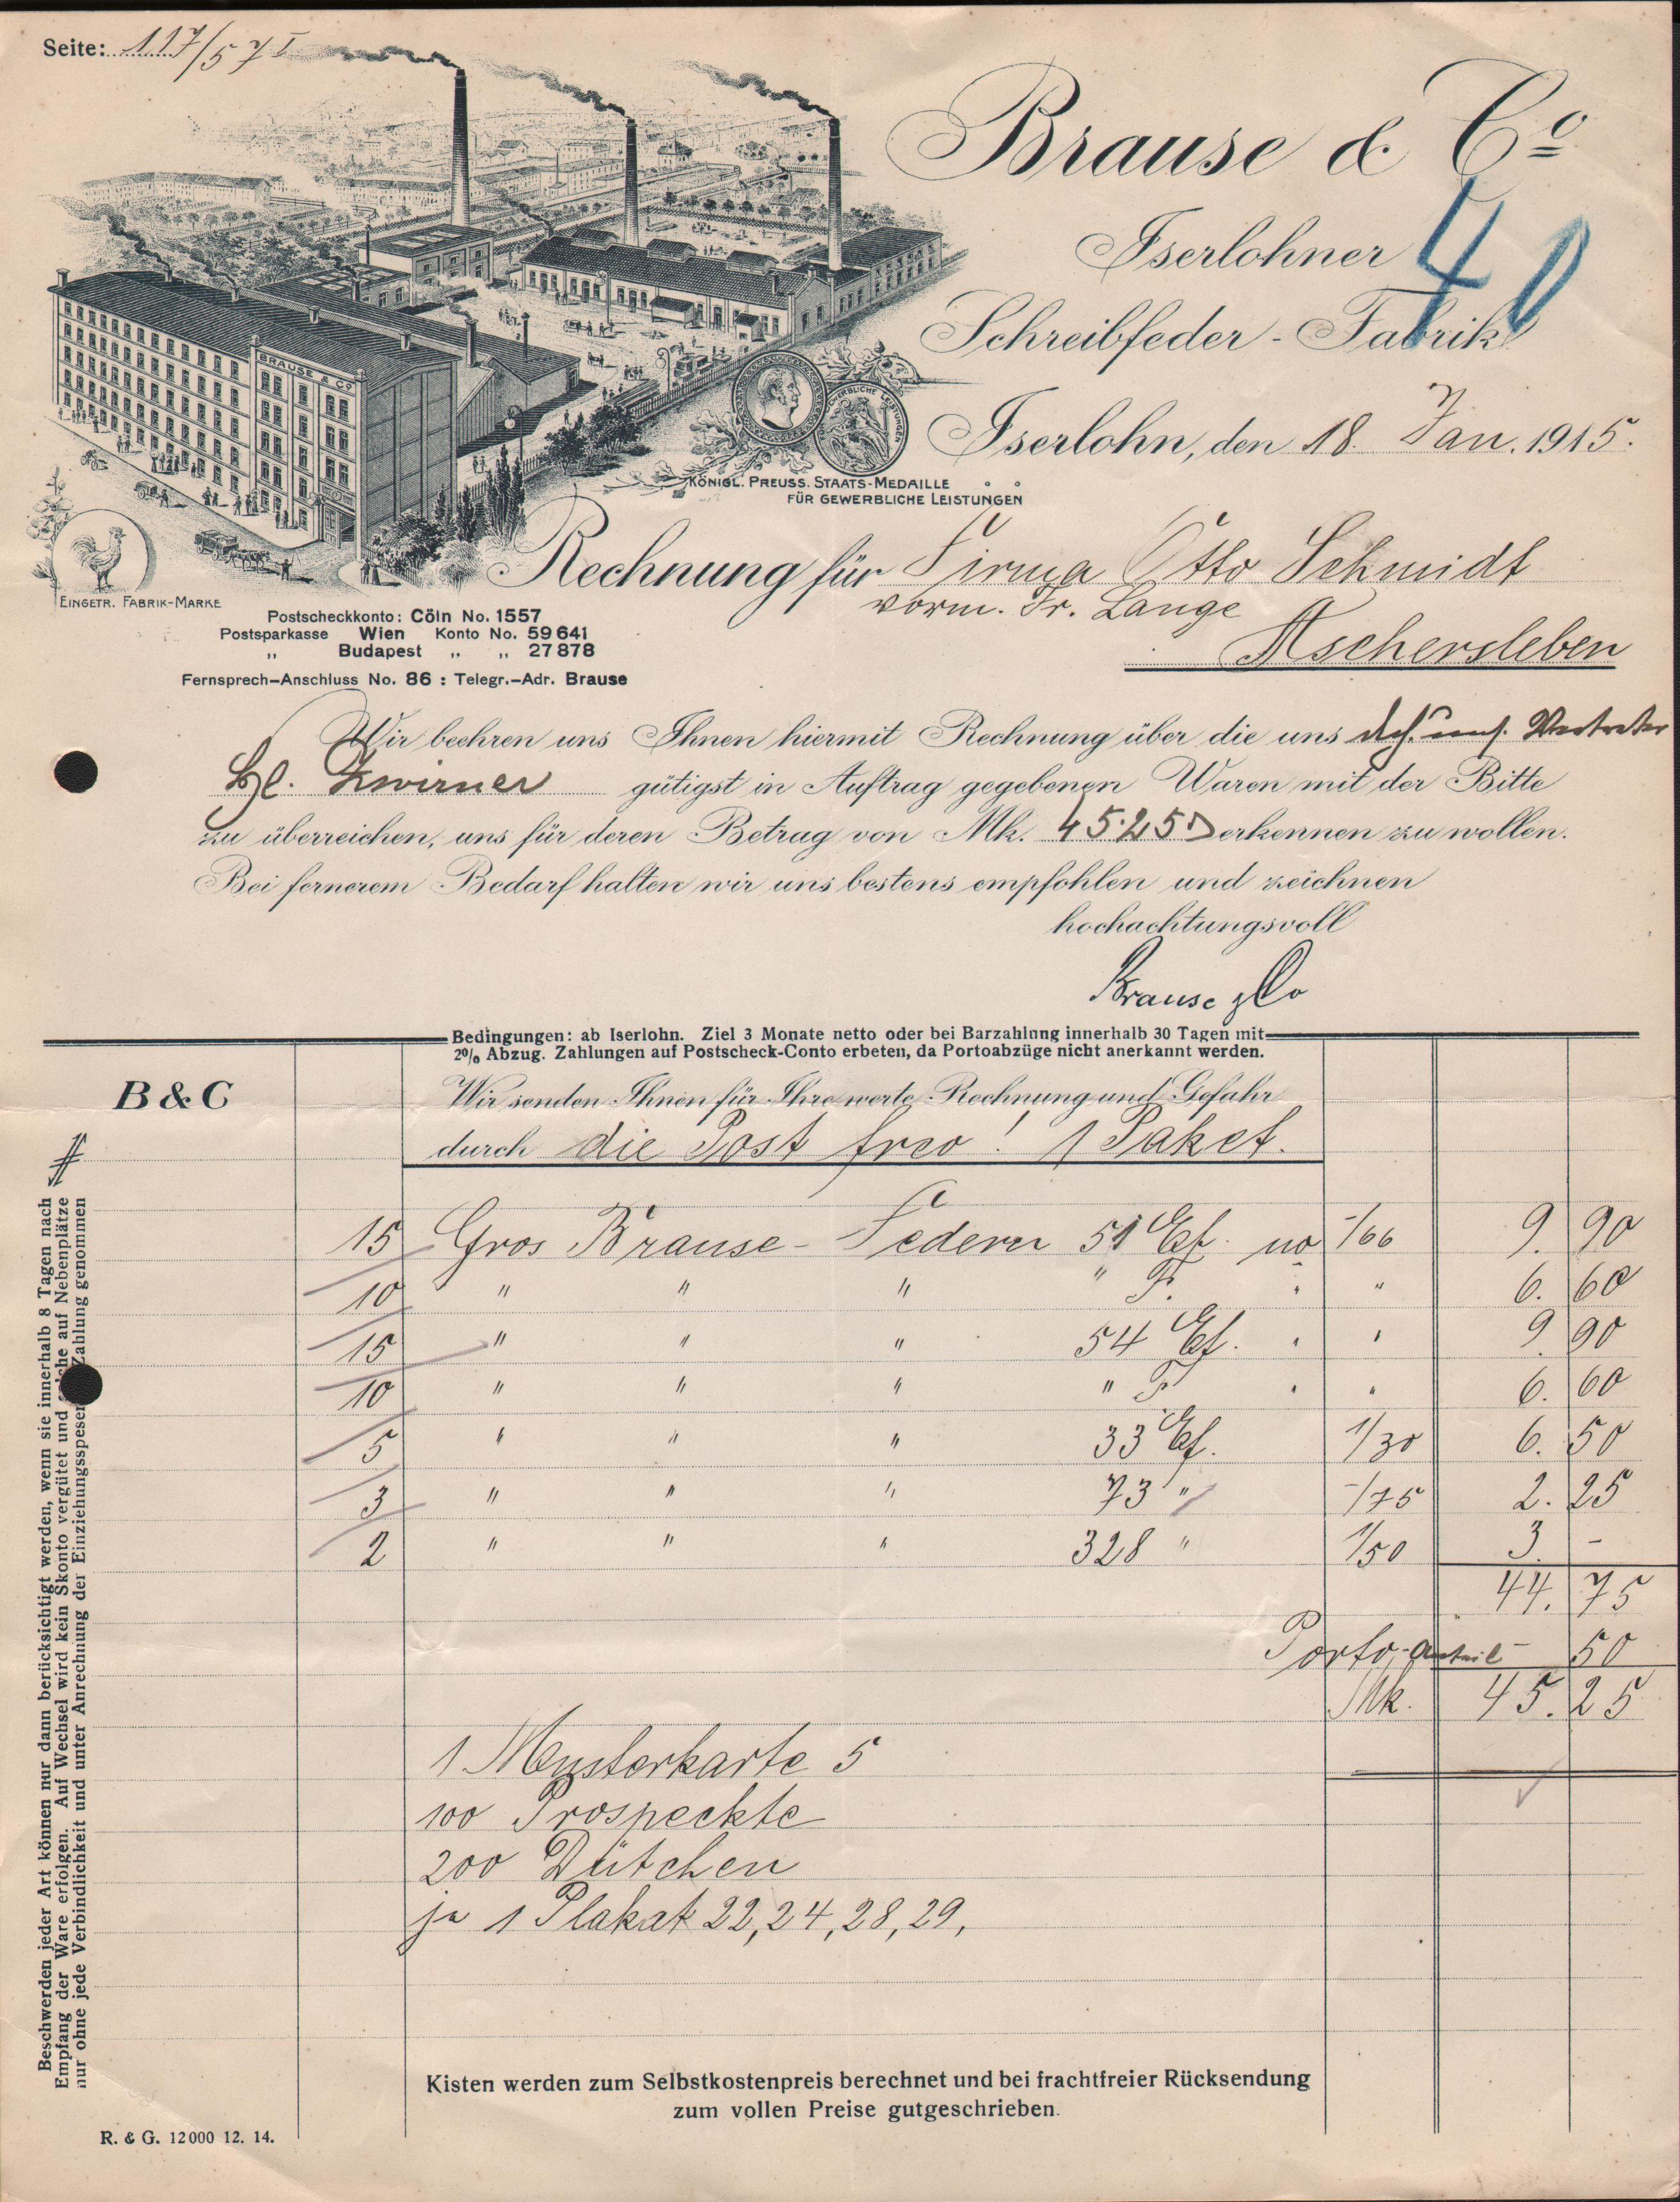 Seite: 117/57 I
Brause & Co
Iserlohner
40
Schreibfeder - Fabrik
BRAUSE & Co
GEWERBLICHE LEISTUNGEN
Iserlohn, den 18. Jan. 1915.
KÖNIGL. PREUSS. STAATS-MEDAILLE
FÜR GEWERBLICHE LEISTUNGEN
EINGETR. FABRIK-MARKE
Rechnung für Firma Otto Schmidt
vorm. Fr. Lange
Aschersleben
Postscheckkonto: Cöln No. 1557
Postsparkasse Wien Konto No. 59641
„ Budapest „ „ 27878
Fernsprech-Anschluss No. 86 : Telegr.-Adr. Brause
Wir beehren uns Ihnen hiermit Rechnung über die uns dch. uns. Vertreter
Zwirner gütigst in Auftrag gegebenen Waren mit der Bitte
zu überreichen, uns für deren Betrag von Mk. 45.25 erkennen zu wollen.
Bei fernerem Bedarf halten wir uns bestens empfohlen und zeichnen
hochachtungsvoll
Brause & Co
Bedingungen: ab Iserlohn. Ziel 3 Monate netto oder bei Barzahlung innerhalb 30 Tagen mit
2% Abzug. Zahlungen auf Postscheck-Conto erbeten, da Portoabzüge nicht anerkannt werden.
B & C
Wir senden Ihnen für Ihre werte Rechnung und Gefahr
durch die Post frco! 1 Paket.
15 Gros Brause-Federn 51 Ef. no -/66 9. 90
10 " " " " F. " " 6. 60
15 " " " 54 Ef. " " 9 90
10 " " " " F " " 6. 60
5 " " " 33 Ef. 1/30 6. 50
3 " " " 73 " -/75 2. 25
2 " " " 328 " 1/50 3. -
44. 75
Porto-Anteil - 50
Mk. 45. 25
1 Musterkarte 5
100 Prospeckte
200 Dütchen
je 1 Plakat 22, 24, 28, 29,
Beschwerden jeder Art können nur dann berücksichtigt werden, wenn sie innerhalb 8 Tagen nach
Empfang der Ware erfolgen. Auf Wechsel wird kein Skonto vergütet und solche auf Nebenplätze
nur ohne jede Verbindlichkeit und unter Anrechnung der Einziehungsspesen Zahlung genommen
Kisten werden zum Selbstkostenpreis berechnet und bei frachtfreier Rücksendung
zum vollen Preise gutgeschrieben.
R. & G. 12000 12. 14.